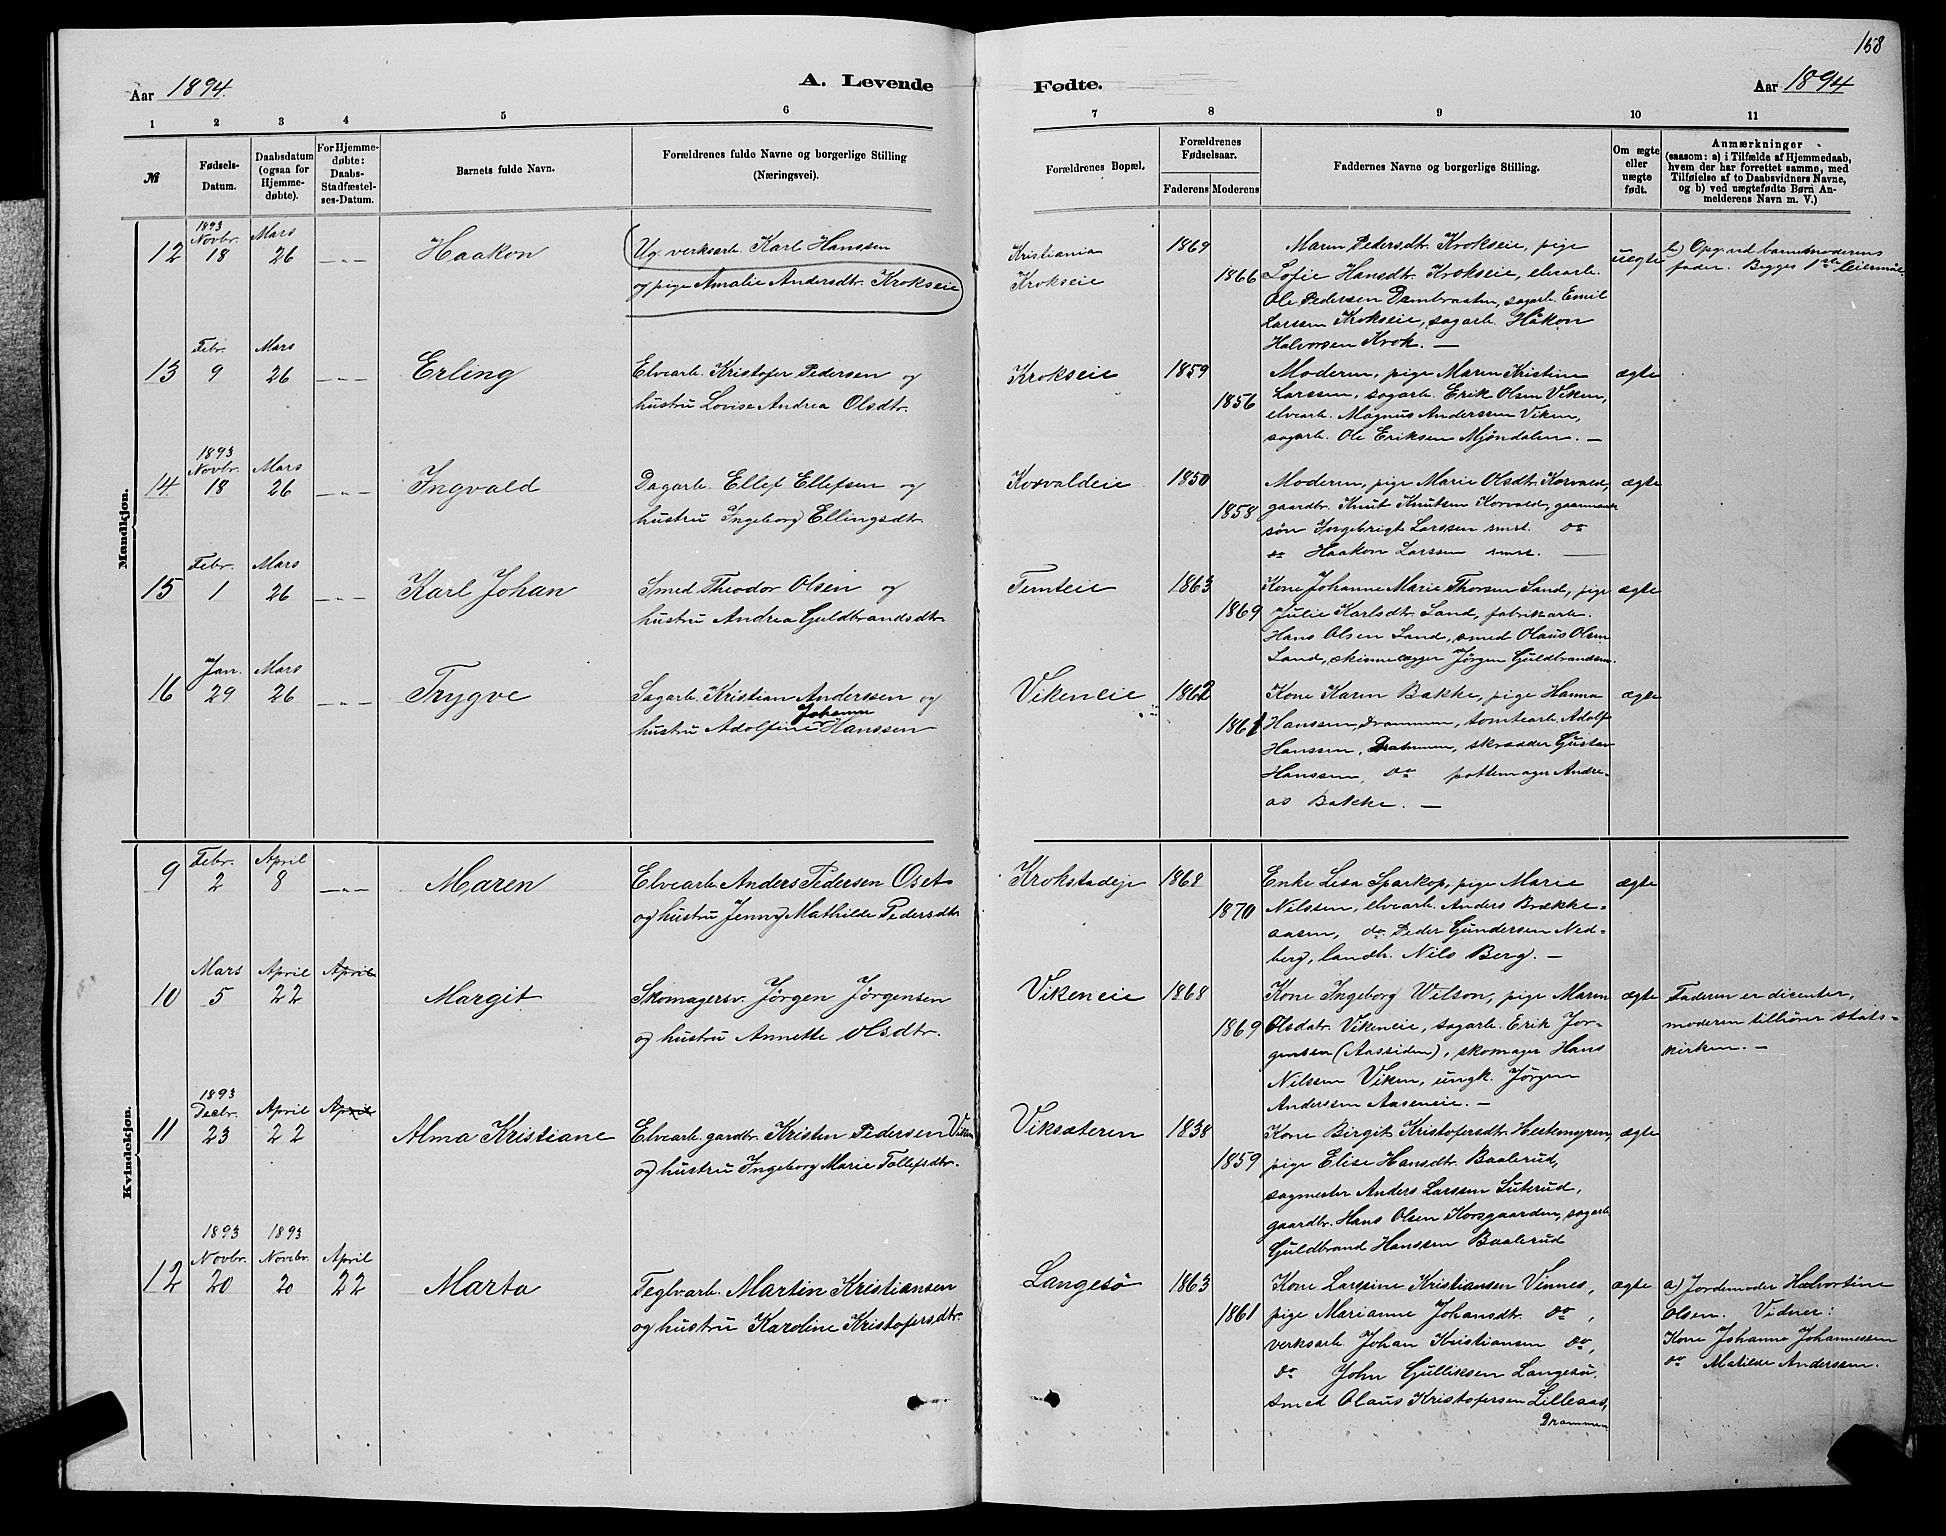 158
Aar 1894.
A. Levende
Fødte.
Aar 1894
1 2 3 4 5 6 7 8 9 10 11
№
Fødsels-
Datum.
Daabsdatum
(ogsaa for
Hjemme-
døbte).
For Hjemme-
døbte:
Daabs-
Stadfæstel-
ses-Datum.
Barnets fulde Navn.
Forældrenes fulde Navne og borgerlige Stilling
(Næringsvei).
Forældrenes Bopæl.
Forældrenes
Fødselsaar.
Faderens Moderens
Faddernes Navne og borgerlige Stilling.
Om ægte
eller
uægte
født.
Anmærkninger
(saasom: a) i Tilfælde af Hjemmedaab,
hvem der har forrettet samme, med
Tilføielse af to Daabsvidners Navne,
og b) ved uægtefødte Børn An-
melderens Navn m. V.)
Mandkjøn.
1893
Novbr. Mars
12 18 26 -"- Haakon
Ug. verksarb. Karl Hanssen
og pige Amalie Andersdtr. Krokseie
Kristiania
Krokseie
1869
1866
Maren Pedersdt. Krokseie, pige
Sofie Hansdtr. Krokseie, elvearb.
Ole Pedersen Dambraaten, sagarb. Emil
Larssen Krokseie, sagarb. Håkon
Halvorsen Krok. —
uægte
b) Opg. ved barnemoderens
fader. Begges 1ste leiermål
Febr. Mars
13 9 26 -"- Erling
Elvearb. Kristofer Pedersen og
hustru Lovise Andrea Olsdtr.
Krokseie
1859
1856
Moderen, pige Maren Kristine
Larssen, sagarb. Erik Olsen Viken,
elvearb. Magnus Anderssen Viken,
sagarb. Ole Eriksen Mjøndalen. —
ægte
1893
Novbr. Mars
14. 18 26 -"- Ingvald
Dagarb. Ellef Ellefsen og
hustru Ingeborg Ellingsdtr.
Korvaldeie
1850
1858
Moderen, pige Marie Olsdt. Korvald,
gaardbr. Knut Knutsen Korvald, gaarmands
søn Ingebrigt Larssen smst. do
do Haakon Larssen smst. —
ægte
Febr. Mars
15 1 26 -"- Karl Johan
Smed Theodor Olsen og
hustru Andrea Guldbrandsdtr.
Temteie
1863
1869
Kone Johanne Marie Thorsen Land, pige
Julie Karlsdtr. Land, fabrikarb.
Hans Olsen Land, smed Olaus Olsen
Land, skinnelægger Jørgen Guldbrandsen.
ægte
Jan. Mars
16 29 26 -"- Trygve
Sagarb. Kristian Anderssen og
Johanne
hustru Adolfine Hanssen
Vikeneie
1862
1861
Kone Karen Bakke, pige Hanna
Hanssen, Drammen, tomtearb. Adolf
Hanssen, Drammen, skrædder Gustav
Hanssen, do pottemager Andre-
as Bakke. —
ægte
Kvindekjøn.
Febr. April
9 2 8 -"- Maren
Elvearb. Anders Pedersen Oset
og hustru Jenny Mathilde Pedersdtr.
Krokstadeje
1868
1870
Enke Lisa Sparkop, pige Marie
Nilssen, elvearb. Anders Brække-
aasen, do. Peder Gundersen Ned-
berg, landh. Nils Berg. —
ægte
Mars April April
10 5 22 Margit
Skomagersv. Jørgen Jørgensen
og hustru Annette Olsdtr.
Vikeneie
1868
1869
Kone Ingeborg Wilson, pige Maren
Olsdatr. Vikeneie, sagarb. Erik Jør-
gensen (Aassiden), skomager Hans
Nilssen Viken, ungk. Jørgen
Anderssen Aaseneie. —
ægte
Faderen er dicenter,
moderen tilhører stats-
kirken. —
1893
Decbr. April April
11 23 22 Alma Kristiane
Elvearb. gardbr. Kristen Pedersen Viken
og hustru Ingeborg Marie Tollefsdtr.
Viksæteren
1838
1859
Kone Birgit Kristofersdtr. Hestemyren,
pige Elise Hansdtr. Baalerud,
sagmester Anders Larssen Suterud,
gaardbr. Hans Olsen Korsgaarden, sagarb.
Guldbrand Hanssen Baalerud
ægte
1893 1893
Novbr. Novbr. April
12 20 20 22 Marta
Teglvarb. Martin Kristiansen
og hustru Karoline Kristofersdtr.
Langesø
1863
1861
Kone Larsine Kristiansen Vinnes,
pige Marianne Johansdtr. do ,
verksarb. Johan Kristiansen do,
do John Gulliksen Langesø,
smed Olaus Kristofersen Lilleaas,
Drammen
ægte
a) Jordemoder Halvorline
Olsen. Vidner:
Kone Johanne Johannessen
do Matilde Anderssen.